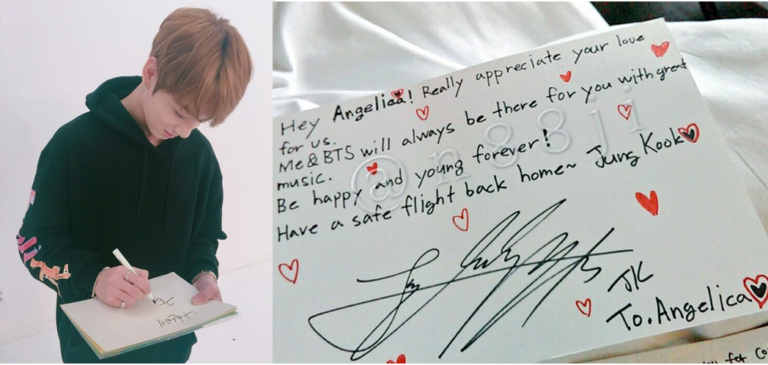 Hey Angelica! Really appreciate your love
for us.
Me & BTS will always be there for you with great
music.
Be happy and young forever!
Have a safe flight back home~ Jung Kook
JK
To. Angelica
@n88ji
for Co